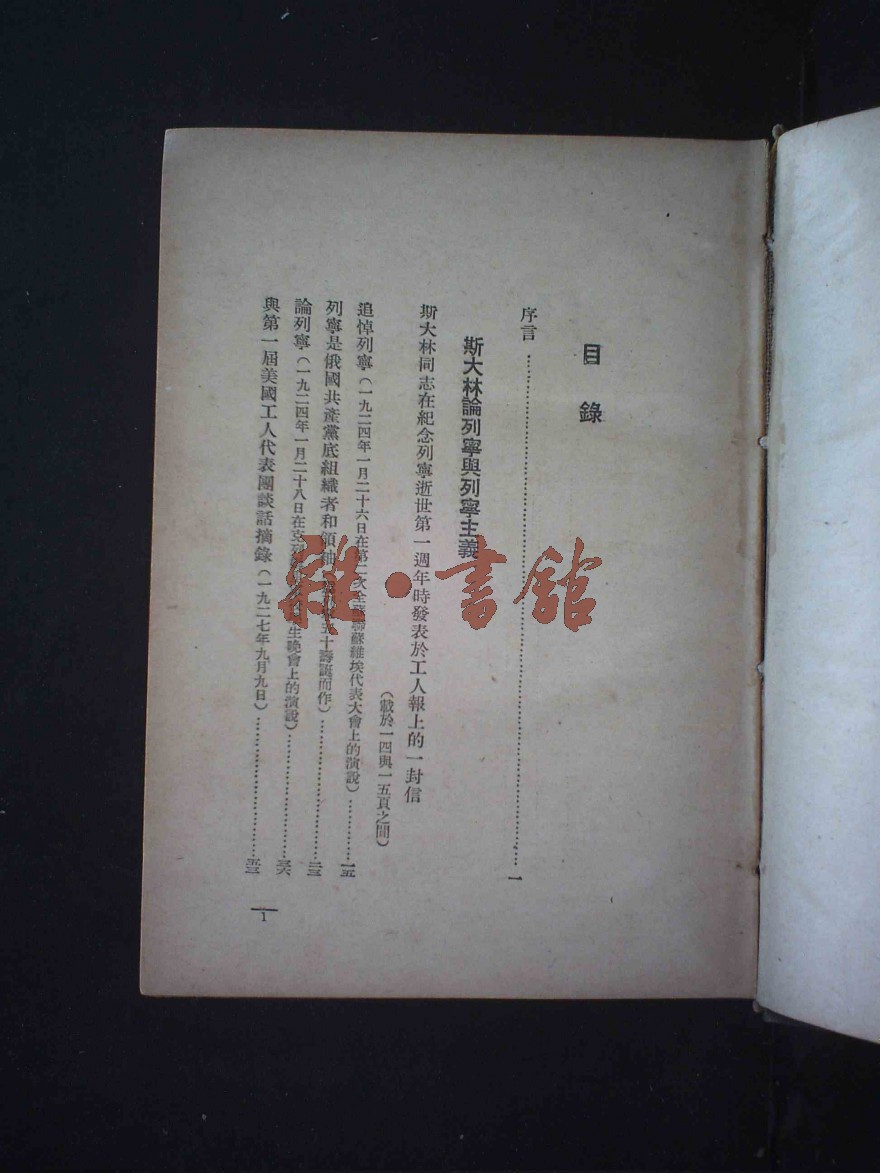 目錄
序言……一
斯大林論列寧與列寧主義
斯大林同志在紀念列寧逝世第一週年時發表於工人報上的一封信
(載於一四與一五頁之間)
追悼列寧(一九二四年一月二十六日在第二次全蘇聯蘇維埃代表大會上的演說)……一五
列寧是俄國共產黨底組織者和領袖 五十壽誕而作)……二三
論列寧(一九二四年一月二十八日在克 生晚會上的演說)……三六
與第一屆美國工人代表團談話摘錄(一九二七年九月九日)……五三
1
雜·書館